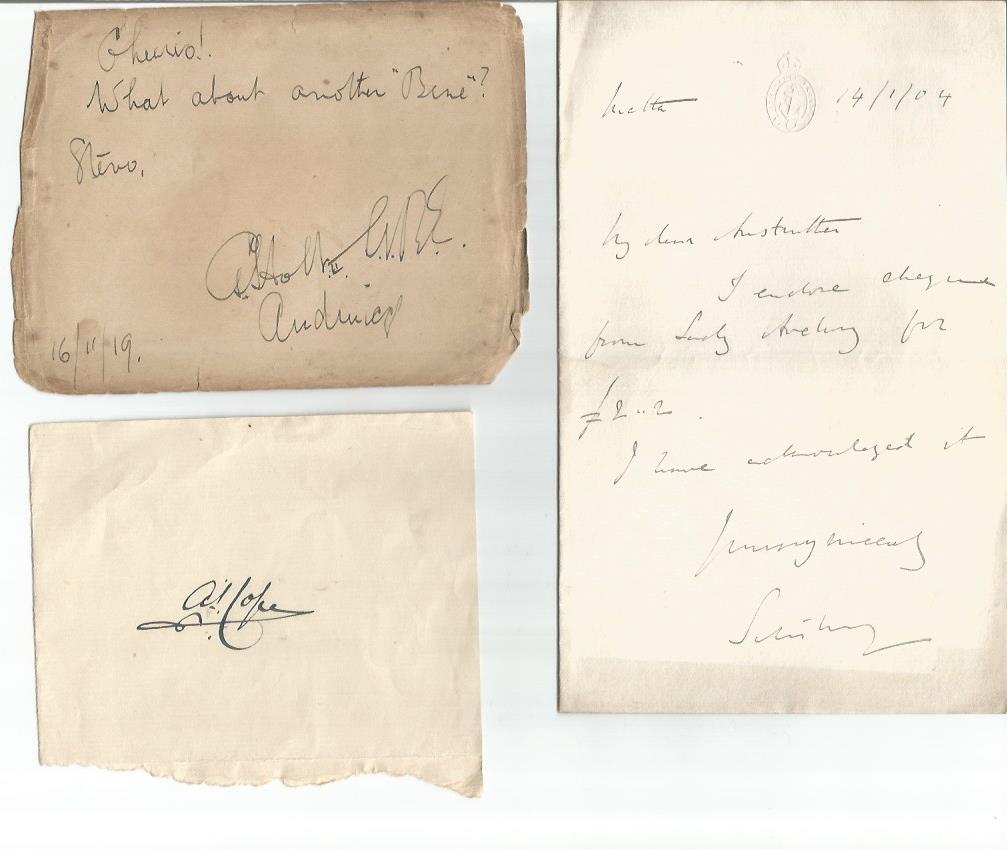 Cheerio!
What about another "Bene"?
Stevo.
C.B.E.
16/11/19.
A. Cope
14/1/04
My dear Anstruther
I enclose cheque
from Lady Avebury for
£2..2.
I have acknowledged it
yours very sincerely